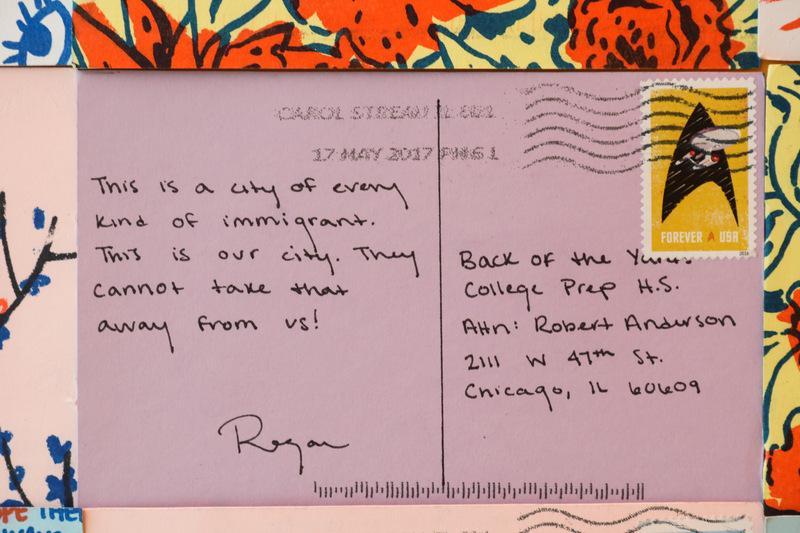 CAROL STREAM IL 601
17 MAY 2017 PM 6 L
This is a city of every
kind of immigrant.
This is our city. They
cannot take that
away from us!
Regan
FOREVER USA
2016
Back of the Yards
College Prep H.S.
Attn: Robert Anderson
2111 W 47th St.
Chicago, IL 60609